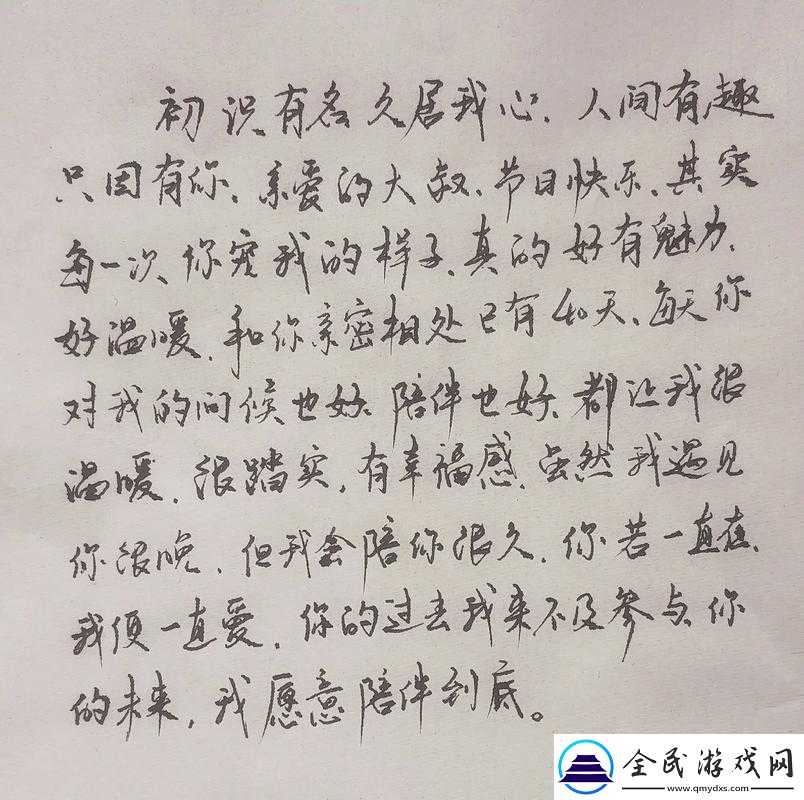 初识有名久居我心、人间有趣
只因有你、亲爱的大叔、节日快乐、其实
每一次、你宠我的样子、真的好有魅力、
好温暖、和你亲密相处已有40天、每天你
对我的问候也好、陪伴也好、都让我很
温暖、很踏实,有幸福感、虽然我遇见
你很晚、但我会陪你很久、你若一直在、
我便一直爱、你的过去我来不及参与、你
的未来,我愿意陪伴到底。
全民游戏网
www.qmydxs.com